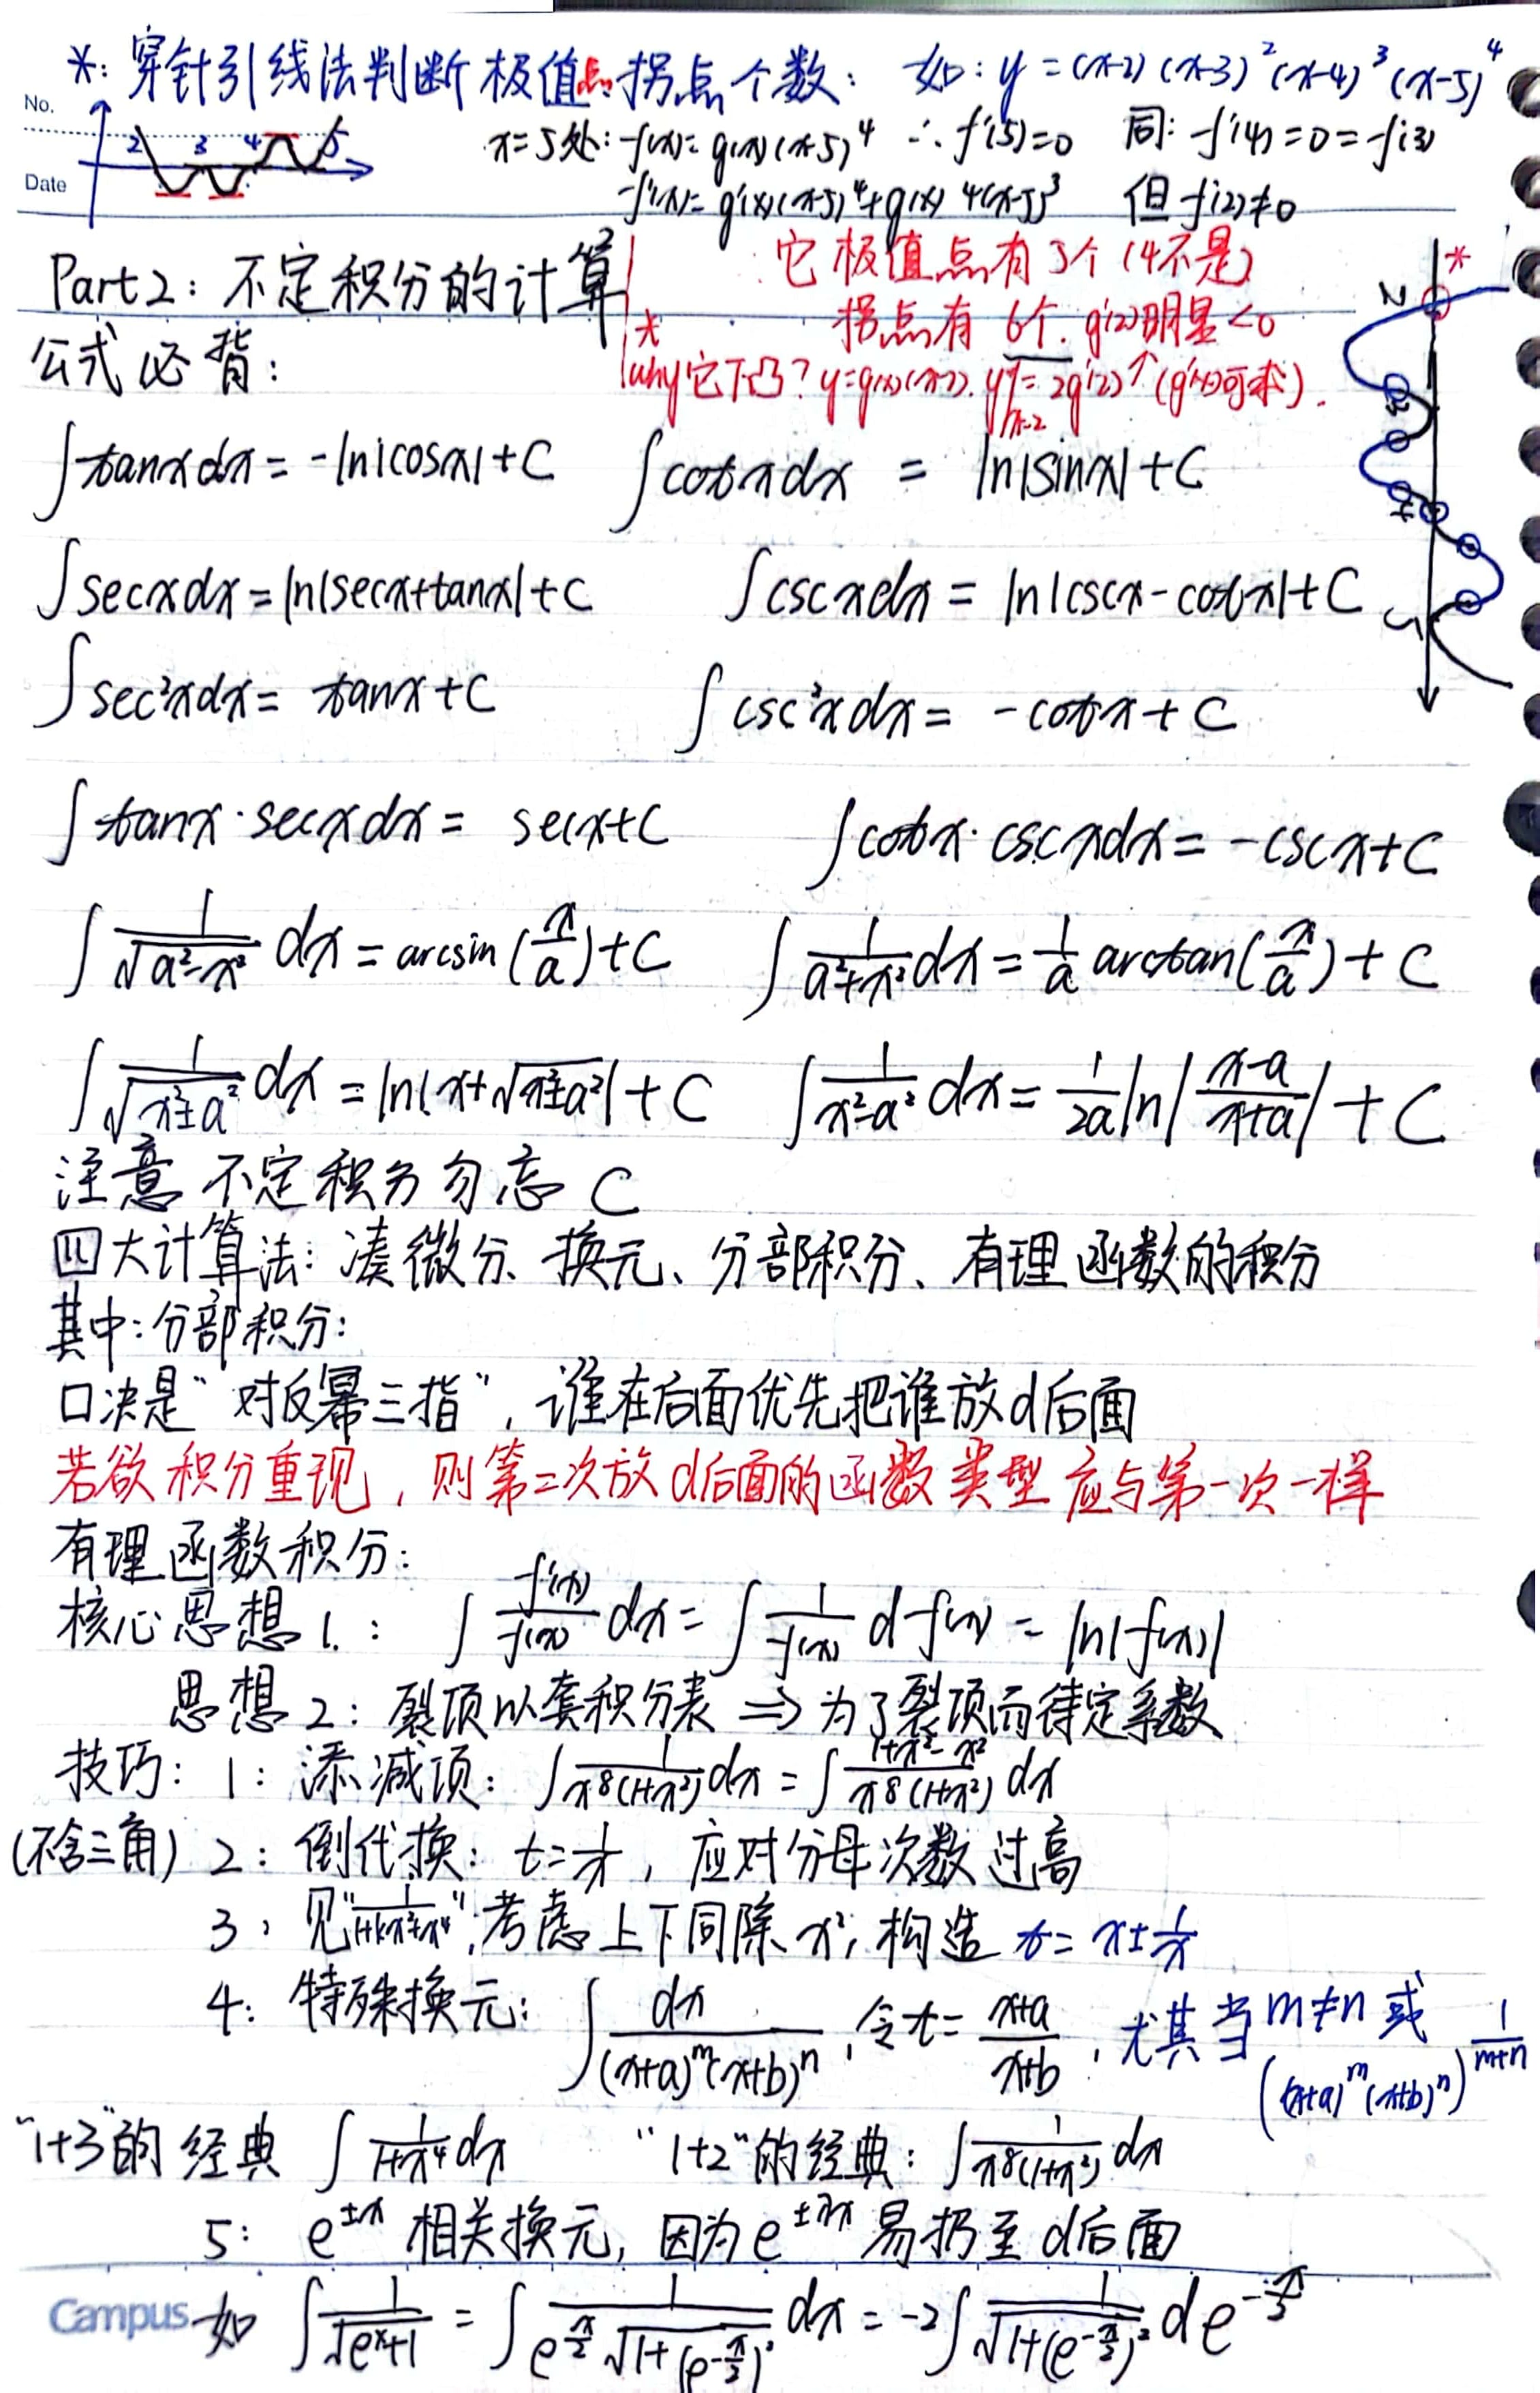 *: 穿针引线法判断极值点、拐点个数: 如: y = (x-2)(x-3)²(x-4)³(x-5)⁴
No.
Date
2 3 4 5
x=5处: f(x)= g(x)(x-5)⁴ ∴ f'(5)=0 同: f'(4)=0=f'(3)
f'(x)= g'(x)(x-5)⁴+g(x) 4(x-5)³ 但f'(2)≠0
它极值点有5个 (4不是)
拐点有 6个. g'(2)明显<0
* why它下凸? y=g(x)(x-2). y''|x=2 = 2g'(2)↑(g'(x)可求).
*
2 3 4 5
Part 2: 不定积分的计算
公式必背:
∫tanxdx = -ln|cosx|+C ∫cotxdx = ln|sinx|+C
∫secxdx = ln|secx+tanx|+C ∫cscxdx = ln|cscx-cotx|+C
∫sec²xdx = tanx+C ∫csc²xdx = -cotx+C
∫tanx·secxdx = secx+C ∫cotx·cscxdx = -cscx+C
∫1/√(a²-x²) dx = arcsin(x/a)+C ∫1/(a²+x²) dx = 1/a arctan(x/a)+C
∫1/√(x²±a²) dx = ln|x+√(x²±a²)|+C ∫1/(x²-a²) dx = 1/2a ln|(x-a)/(x+a)|+C
注意 不定积分勿忘 C
四大计算法: 凑微分、换元、分部积分、有理函数的积分
其中: 分部积分:
口决是“对反幂三指”, 谁在后面优先把谁放d后面
若欲积分重现, 则第二次放d后面的函数类型应与第一次一样
有理函数积分:
核心思想1.: ∫f'(x)/f(x) dx = ∫1/f(x) d f(x) = ln|f(x)|
思想2: 裂项以套积分表 ⇒ 为了裂项而待定系数
技巧: 1: 添减项: ∫1/(x⁸(1+x²)) dx = ∫(1+x²-x²)/(x⁸(1+x²)) dx
(不含三角) 2: 倒代换: t=1/x, 应对分母次数过高
3: 见“1/(1+kx²+x⁴)”, 考虑上下同除x², 构造 t= x±1/x
4: 特殊换元: ∫dx/((x+a)ᵐ(x+b)ⁿ), 令t=(x+a)/(x+b), 尤其当m≠n 或 ((x+a)ᵐ(x+b)ⁿ)^(1/(m+n))
“1+3”的经典 ∫1/(1+x⁴) dx “1+2”的经典: ∫1/(x⁸(1+x²)) dx
5: e^(±x) 相关换元, 因为e^(±λx) 易扔至d后面
Campus 如 ∫1/√(eˣ+1) = ∫1/(e^(x/2)√(1+(e^(-x/2))²)) dx = -2∫1/√(1+(e^(-x/2))²) d e^(-x/2)